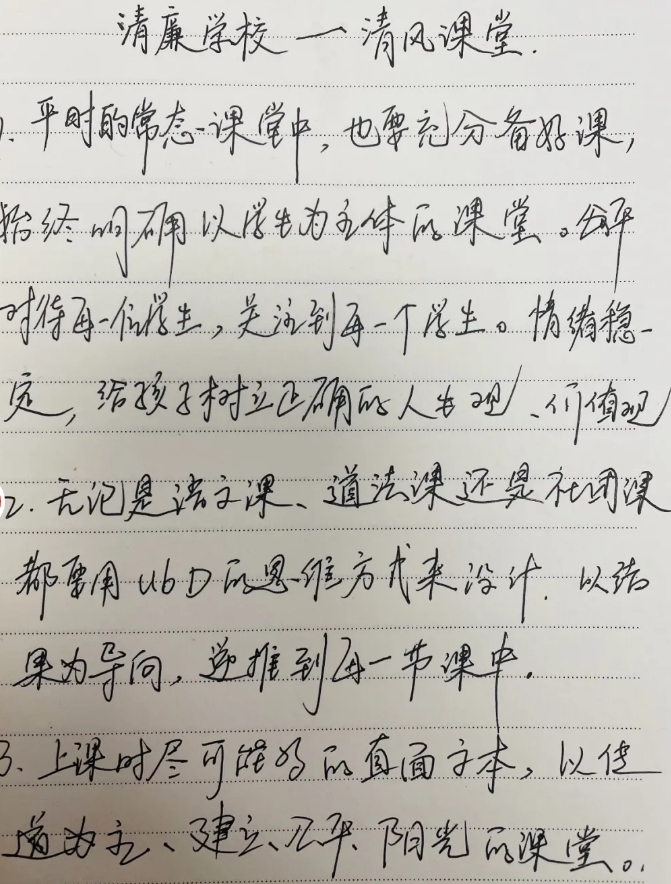 清廉学校一清风课堂.
1. 平时的常态课堂中，也要充分备好课，
始终明确以学生为主体的课堂。公平
对待每一位学生，关注到每一个学生。情绪稳
定，给孩子树立正确的人生观、价值观
2. 无论是语文课、道法课还是社团课
都要用UbD的思维方式来设计. 以结
果为导向，逆推到每一节课中.
3. 上课时尽可能多的直面文本，以传
道为主、建立、公平、阳光的课堂。